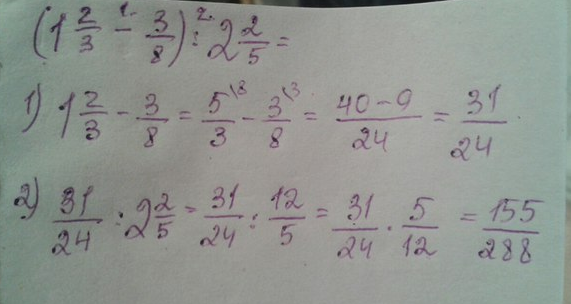 (1 2/3 - 3/8) : 2 2/5 =
1) 1 2/3 - 3/8 = 5\8/3 - 3\3/8 = 40-9/24 = 31/24
2) 31/24 : 2 2/5 = 31/24 : 12/5 = 31/24 · 5/12 = 155/288